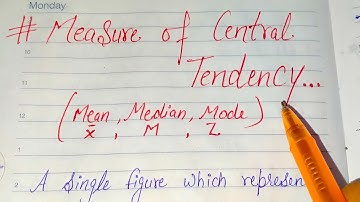 Monday
# Measure of Central
Tendency...
10
11
12
(Mean, Median, Mode)
x̄, M, Z
1
2 A single figure which represen